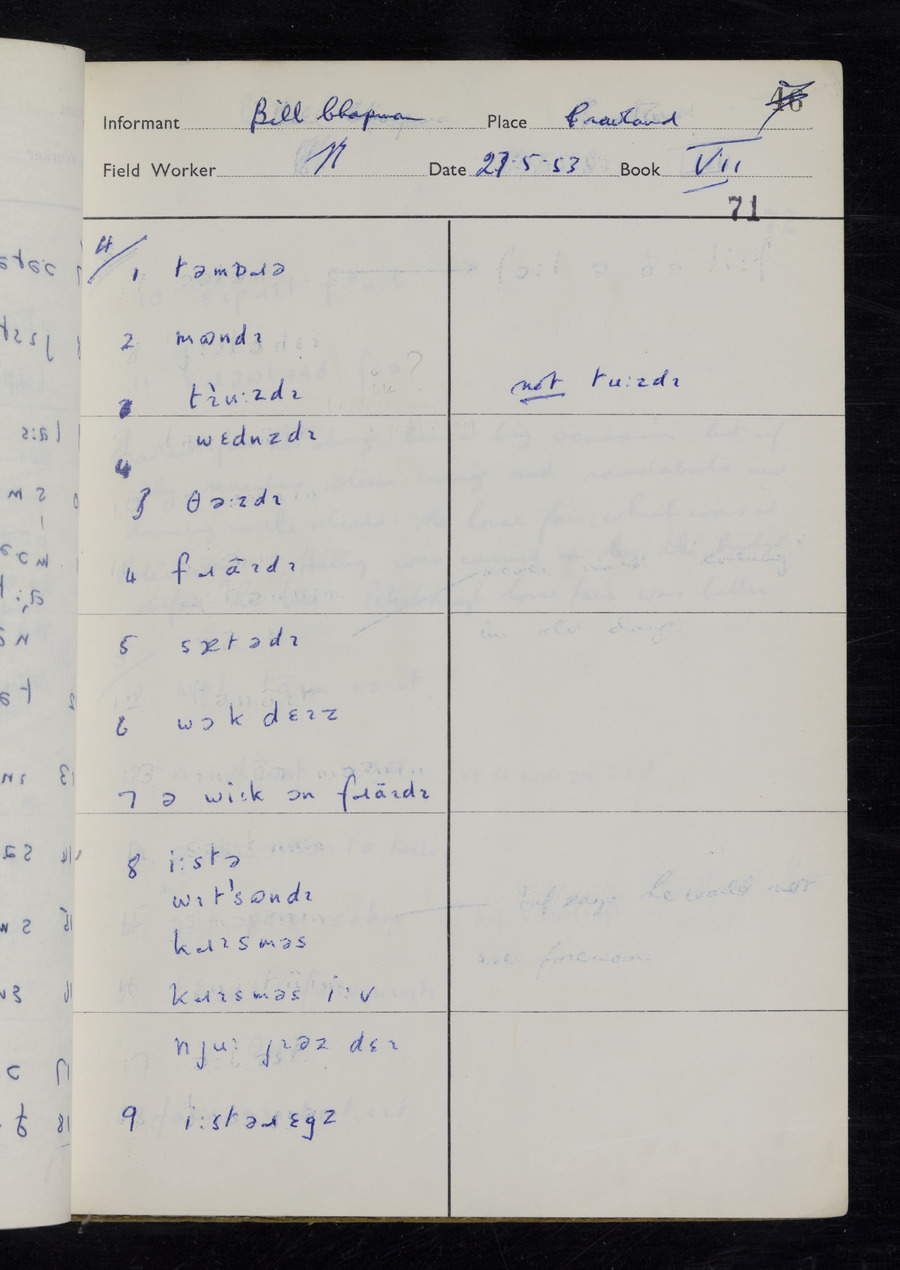 46
Informant Bill Chapman Place Crowland
Field Worker Date 27-5-53 Book VII
71
4/
1 təmɒɹə
2 mɷndɪ
tɪ̀u:zdɪ not tu:zdɪ
wɛdnzdɪ
4
3 θə:zdɪ
4 fɹäɪdɪ
5 sætədɪ
6 wək dɛɪz
7 ə wi:k ən fɹäɪdɪ
8 i:stə
wɪt'sɷndɪ
kɹɪsməs
kɹɪsməs i:v
nju: jɪəz dɛɪ
9 i:stəɹɛgz